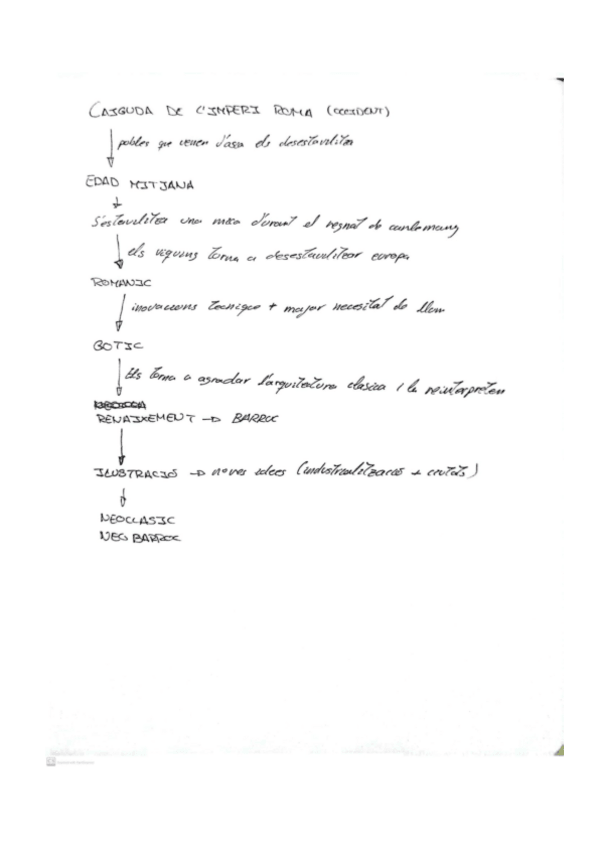 CAIGUDA DE L'IMPERI ROMA (OCCIDENT)
pobles que venen d'asia els desestavilitza
EDAD MITJANA
S'estavilitza una mica durant el regnat de carlemany
els viquins torna a desestavilitzar europa
ROMANIC
inovacions tecniques + major necesitat de llum
GOTIC
Els torna a agradar l'arquitectura clasica i la reinterpreten
RENAIXEMENT → BARROC
ILUSTRACIÓ → noves idees (industrialització + ciutats)
NEOCLASIC
NEO BARROC